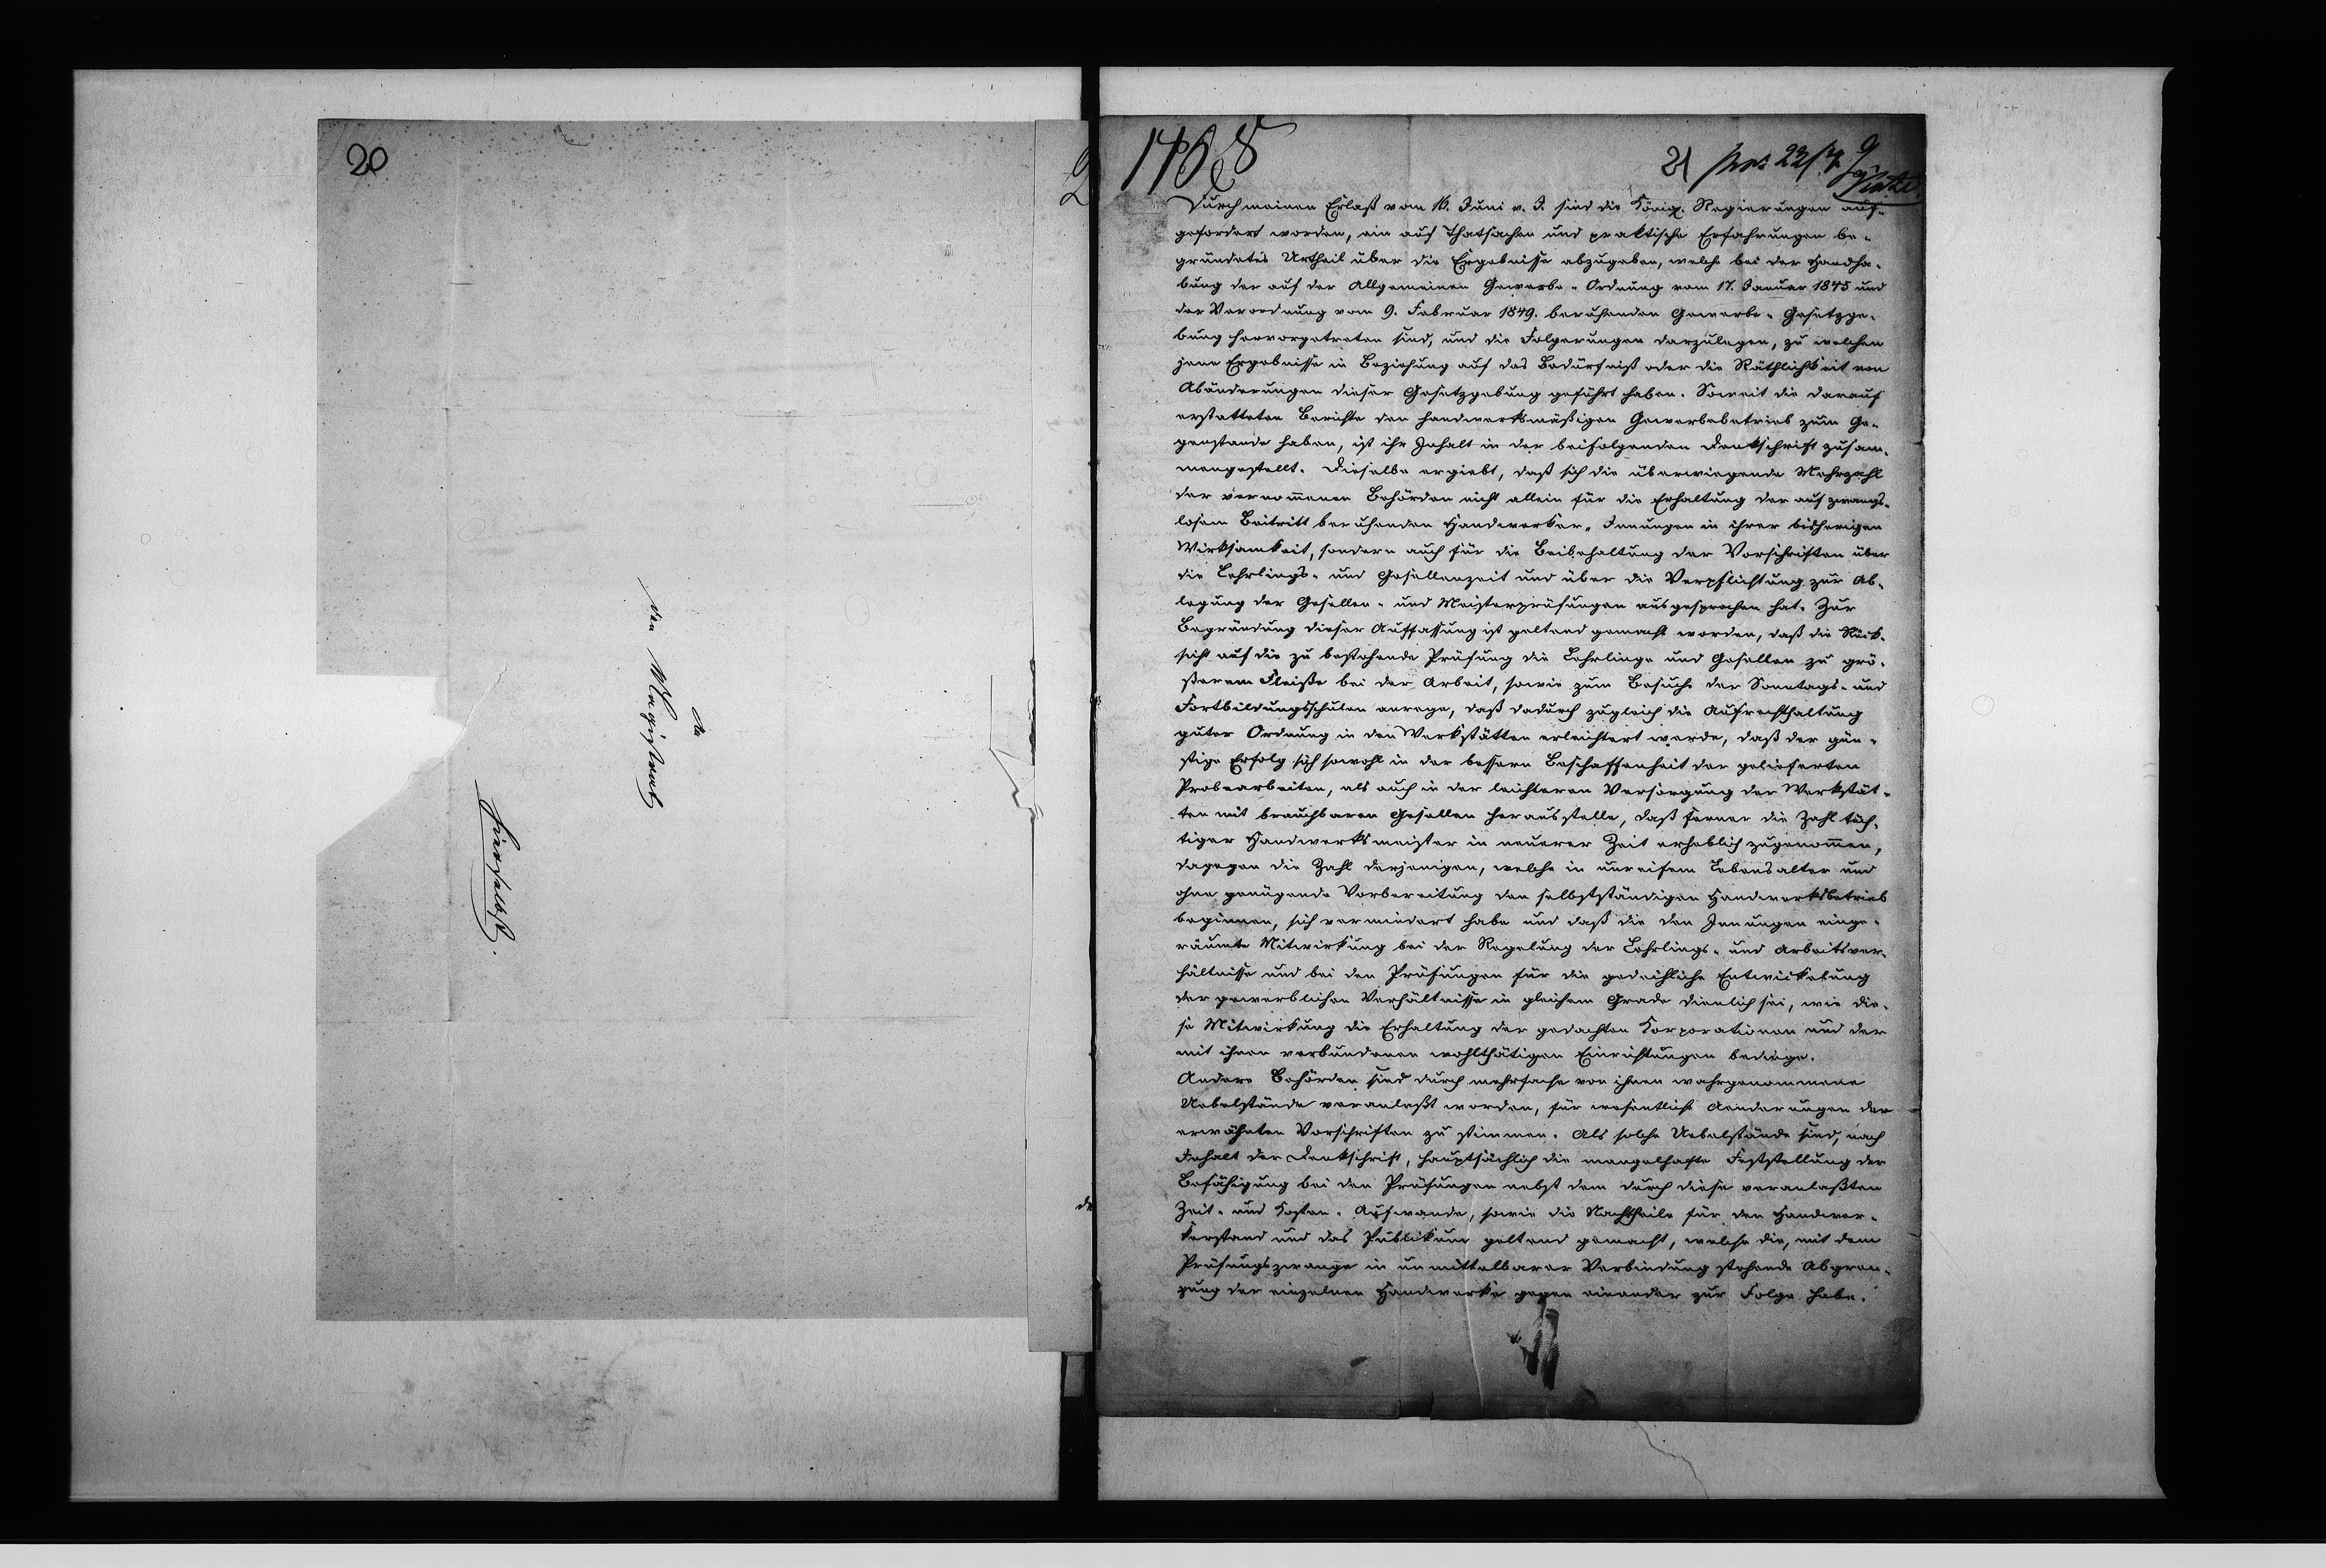 20
An
den Magistrat
hierselbst.
21
Durch meinen Erlaß vom 16. Juni v. J. sind die Königl. Regierungen auf-
gefordert worden, ein auf Thatsachen und praktische Erfahrungen be-
gründetes Urtheil über die Ergebnisse abzugeben, welche bei der Handha-
bung der auf der Allgemeinen Gewerbe-Ordnung vom 17. Januar 1845 und
der Verordnung vom 9. Februar 1849. beruhenden Gewerbe-Gesetzge-
bung hervorgetreten sind, und die Folgerungen darzulegen, zu welchen
jene Ergebnisse in Beziehung auf das Bedürfniß oder die Räthlichkeit von
Abänderungen dieser Gesetzgebung geführt haben. Soweit die darauf
erstatteten Berichte den handwerksmäßigen Gewerbebetrieb zum Ge-
genstande haben, ist ihr Inhalt in der beifolgenden Denkschrift zusam-
mengestellt. Dieselbe ergiebt, daß sich die überwiegende Mehrzahl
der vernommenen Behörden nicht allein für die Erhaltung der auf zwangs-
losem Beitritt beruhenden Handwerker-Innungen in ihrer bisherigen
Wirksamkeit, sondern auch für die Beibehaltung der Vorschriften über
die Lehrlings- und Gesellenzeit und über die Verpflichtung zur Ab-
legung der Gesellen- und Meisterprüfungen ausgesprochen hat. Zur
Begründung dieser Auffassung ist geltend gemacht worden, daß die Rück-
sicht auf die zu bestehende Prüfung die Lehrlinge und Gesellen zu grö-
ßerem Fleiße bei der Arbeit, sowie zum Besuche der Sonntags- und
Fortbildungsschulen anrege, daß dadurch zugleich die Aufrechthaltung
guter Ordnung in den Werkstätten erleichtert werde, daß der gün-
stige Erfolg sich sowohl in der bessern Beschaffenheit der gelieferten
Probearbeiten, als auch in der leichteren Versorgung der Werkstät-
ten mit brauchbaren Gesellen herausstelle, daß ferner die Zahl tüch-
tiger Handwerksmeister in neuerer Zeit erheblich zugenommen,
dagegen die Zahl derjenigen, welche in unreifem Lebensalter und
ohne genügende Vorbereitung den selbstständigen Handwerksbetrieb
beginnen, sich vermindert habe und daß die den Innungen einge-
räumte Mitwirkung bei der Regelung der Lehrlings- und Arbeitsver-
hältnisse und bei den Prüfungen für die gedeihliche Entwickelung
der gewerblichen Verhältnisse in gleichem Grade dienlich sei, wie die-
se Mitwirkung die Erhaltung der gedachten Korporationen und der
mit ihnen verbundenen wohlthätigen Einrichtungen bedinge.
Andere Behörden sind durch mehrfache von ihnen wahrgenommene
Uebelstände veranlaßt worden, für wesentliche Aenderungen der
erwähnten Vorschriften zu stimmen. Als solche Uebelstände sind, nach
Inhalt der Denkschrift, hauptsächlich die mangelhafte Feststellung der
Befähigung bei den Prüfungen nebst dem durch diese veranlaßten
Zeit- und Kosten-Aufwande, sowie die Nachtheile für den Handwer-
kerstand und das Publikum geltend gemacht, welche die, mit dem
Prüfungszwange in unmittelbarer Verbindung stehende Abgren-
zung der einzelnen Handwerke gegen einander zur Folge habe.